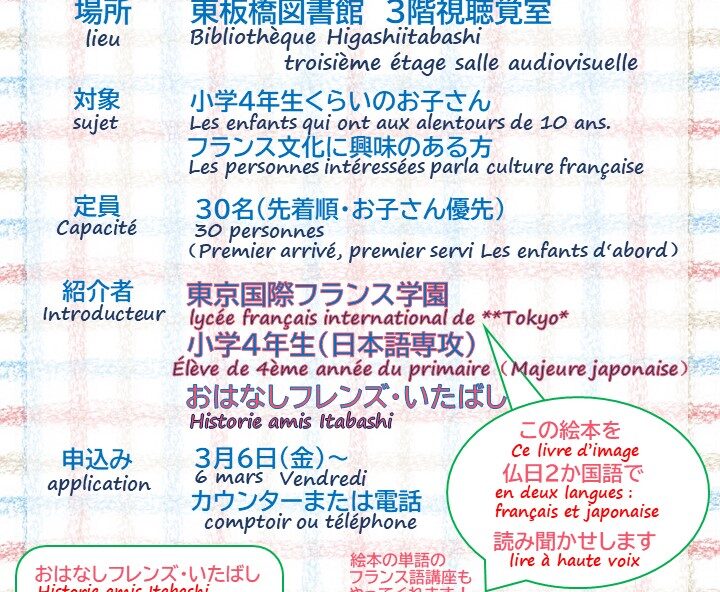 場所 東板橋図書館 3階視聴覚室
lieu Bibliothèque Higashiitabashi
troisième étage salle audiovisuelle
対象 小学4年生くらいのお子さん
sujet Les enfants qui ont aux alentours de 10 ans.
フランス文化に興味のある方
Les personnes intéressées parla culture française
定員 30名(先着順・お子さん優先)
Capacité 30 personnes
(Premier arrivé, premier servi Les enfants d'abord)
紹介者 東京国際フランス学園
Introducteur lycée français international de **Tokyo*
小学4年生(日本語専攻)
Élève de 4ème année du primaire (Majeure japonaise)
おはなしフレンズ・いたばし
Historie amis Itabashi
申込み 3月6日(金)~
application 6 mars Vendredi
カウンターまたは電話
comptoir ou téléphone
この絵本を
Ce livre d'image
仏日2か国語で
en deux langues :
français et japonaise
読み聞かせします
lire à haute voix
おはなしフレンズ・いたばし
Historie amis Itabashi
絵本の単語の
フランス語講座も
やってくれます!